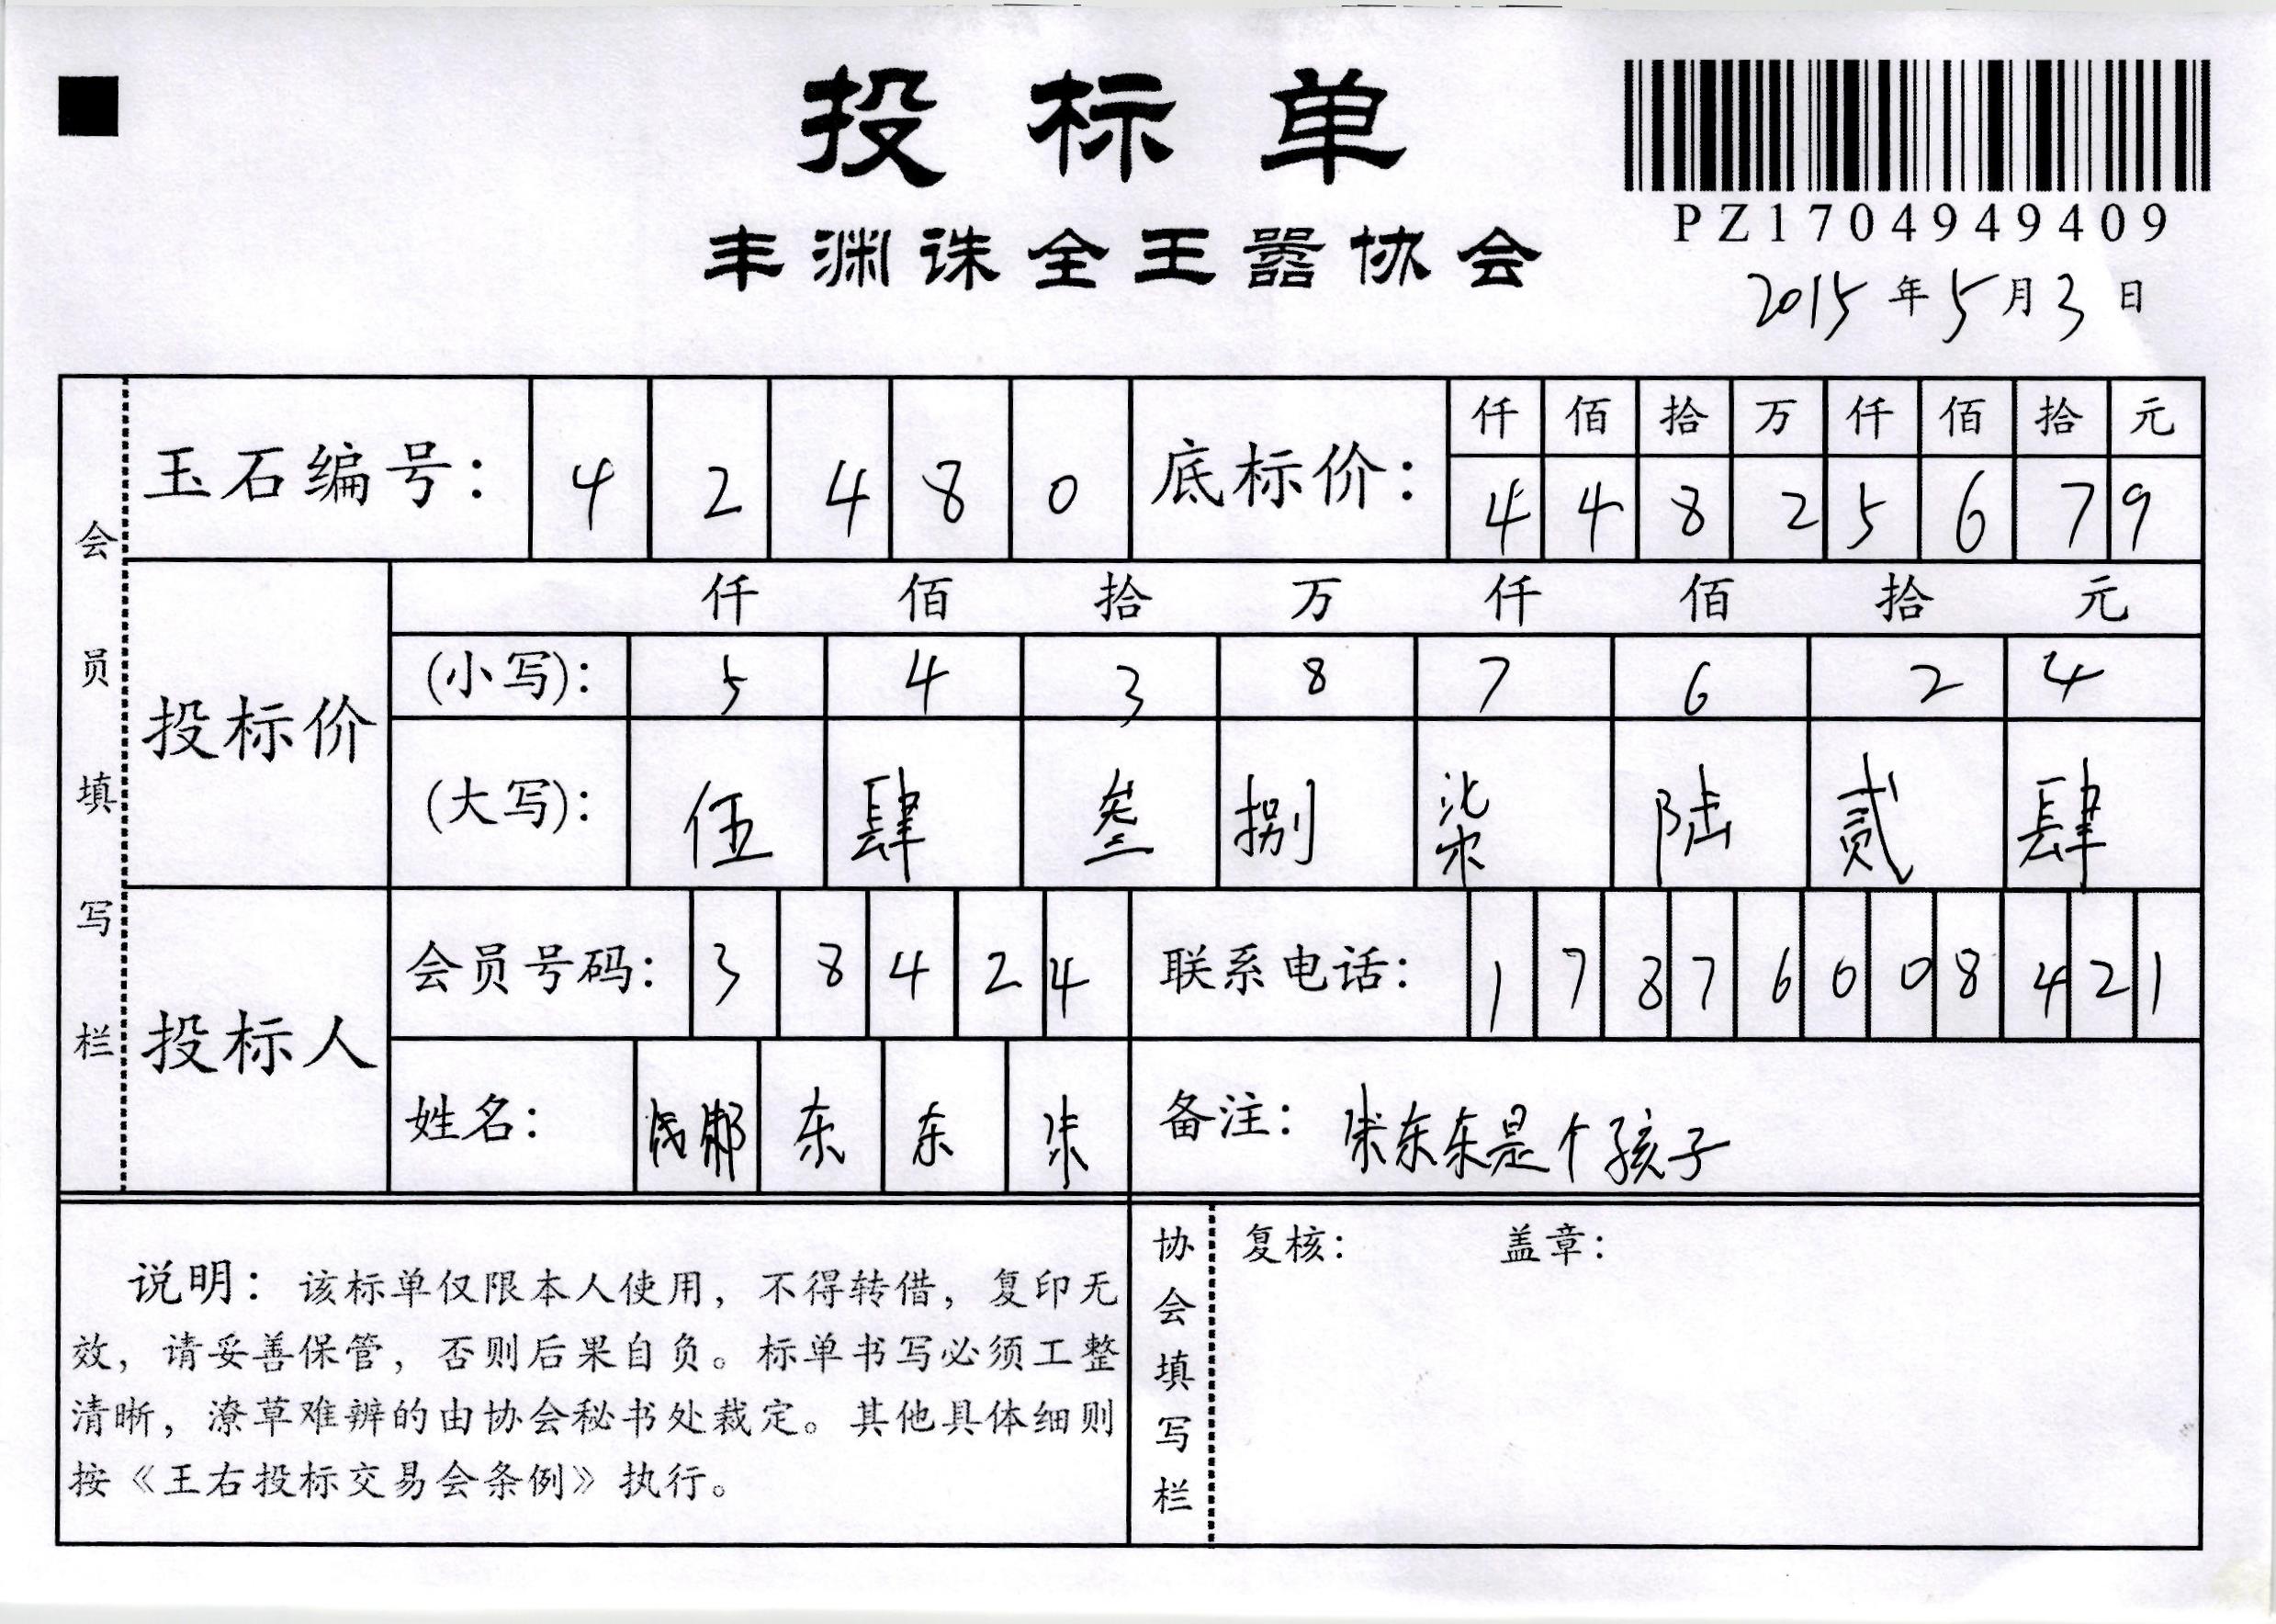 投标单
丰渊诛全王嚣协会
PZ1704949409
2015年5月3日
会员填写栏
玉石编号: 4 2 4 8 0
底标价: 仟 佰 拾 万 仟 佰 拾 元
4 4 8 2 5 6 7 9
投标价
仟 佰 拾 万 仟 佰 拾 元
(小写): 5 4 3 8 7 6 2 4
(大写): 伍 肆 叁 捌 柒 陆 贰 肆
投标人
会员号码: 3 8 4 2 4
联系电话: 1 7 8 7 6 0 0 8 4 2 1
姓名: 东 东
备注: 东东是个孩子
说明: 该标单仅限本人使用, 不得转借, 复印无
效, 请妥善保管, 否则后果自负。标单书写必须工整
清晰, 潦草难辨的由协会秘书处裁定。其他具体细则
按《王右投标交易会条例》执行。
协会填写栏
复核: 盖章: